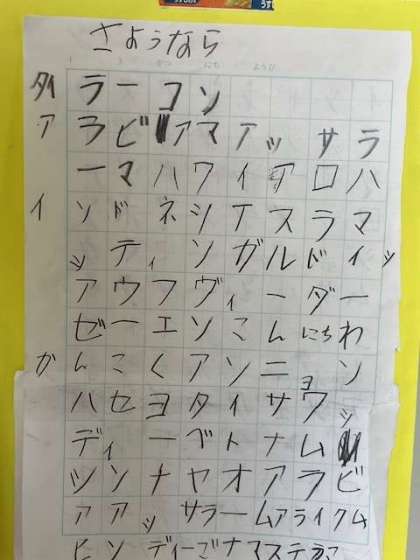 さようなら
タイ ラーコン
ア ラビアマアッサラ
ーマハワイアロハ
イ ンドネシアスラマ
ッティンガルドイツ
アウフヴィーダー
ゼーエンこんにちわ
か んこくアンニョン
ハセヨタイサワッ
ディーベトナム
シンチャオアラビ
アアッサラームアライクム
ヒンディーごナマステ